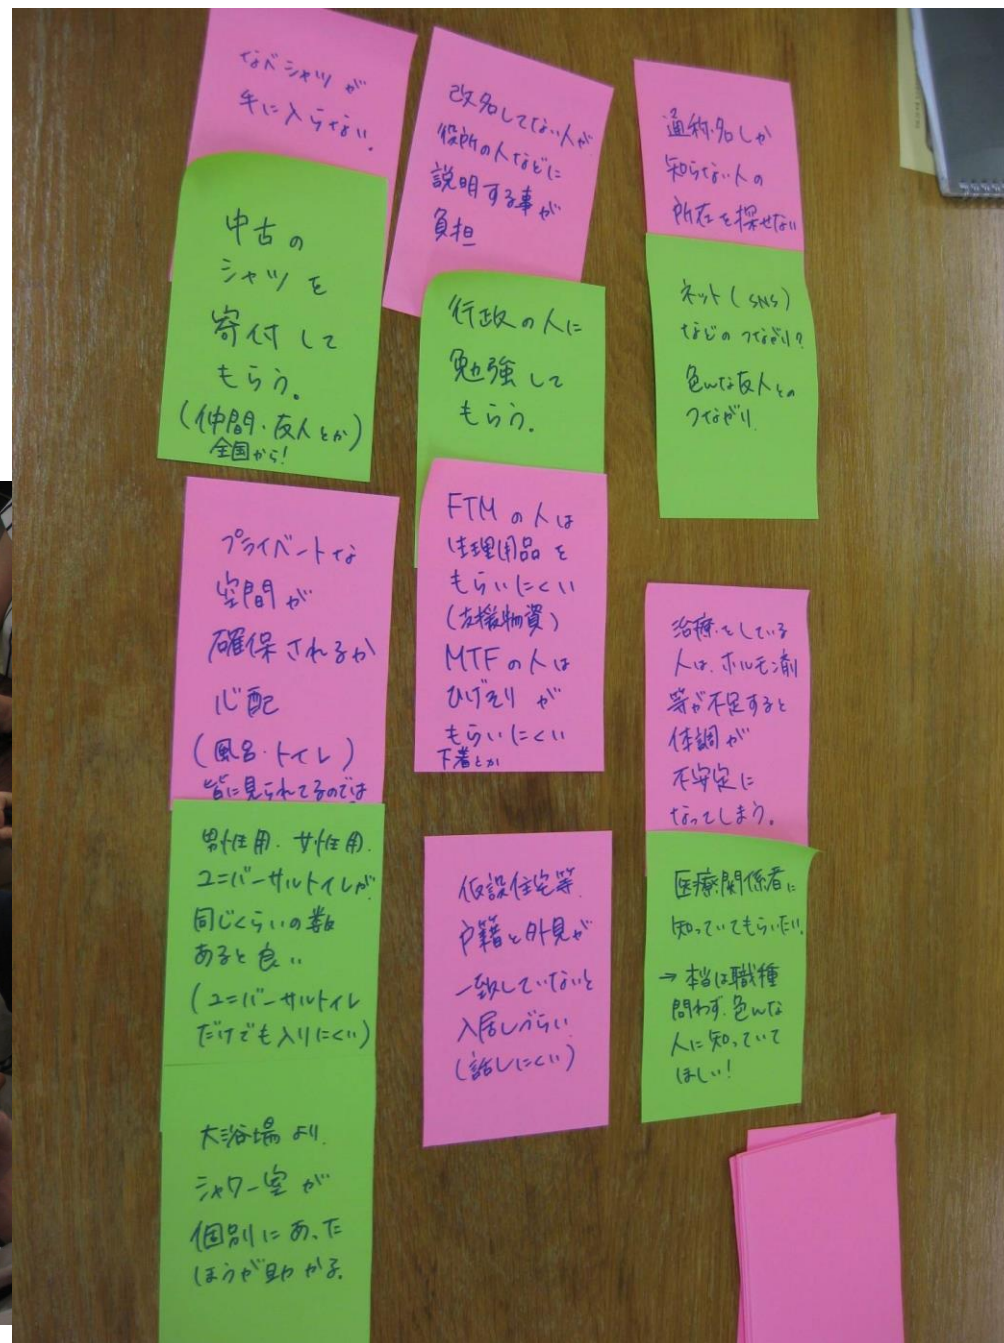 なべシャツが
手に入らない。
中古の
シャツを
寄付して
もらう。
(仲間・友人とか)
全国から!
プライベートな
空間が
確保されるか
心配
(風呂・トイレ)
皆に見られてるのでは
男性用・女性用・
ユニバーサルトイレが
同じくらいの数
あると良い
(ユニバーサルトイレ
だけでも入りにくい)
大浴場より、
シャワー室が
個別にあった
ほうが助かる。
改名してない人が
役所の人などに
説明する事が
負担
行政の人に
勉強して
もらう。
FTMの人は
生理用品を
もらいにくい
(支援物資)
MTFの人は
ひげそりが
もらいにくい
下着とか
仮設住宅等、
戸籍と外見が
一致していないと
入居しづらい
(話しにくい)
通称名しか
知らない人の
所在を探せない
ネット(SNS)
などのつながり?
色んな友人との
つながり
治療をしている
人は、ホルモン剤
等が不足すると
体調が
不安定に
なってしまう。
医療関係者に
知っていてもらいたい。
→本当は職種
問わず、色んな
人に知っていて
ほしい!